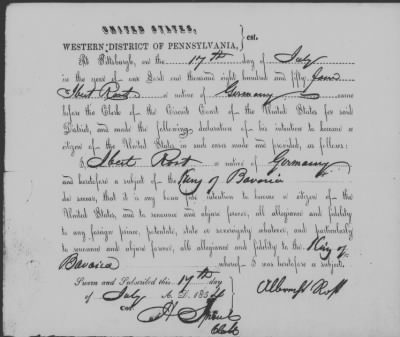 UNITED STATES,
WESTERN DISTRICT OF PENNSYLVANIA, } sct.
At Pittsburgh, on the 17th day of July
in the year of our Lord one thousand eight hundred and fifty four
Albert Rost a native of Germany came
before the Clerk of the Circuit Court of the United States for said
District, and made the following declaration of his intention to become a
citizen of the United States in such case made and provided, as follows:
I, Albert Rost a native of Germany
and heretofore a subject of the King of Bavaria
do swear, that it is my bona fide intention to become a citizen of the
United States, and to renounce and abjure forever, all allegiance and fidelity
to any foreign prince, potentate, state or sovereignty whatever, and particularly
to renounce and abjure forever, all allegiance and fidelity to the King of
Bavaria whereof I was heretofore a subject.
Sworn and Subscribed this 17th day
of July A. D. 1854
Cor. H Sproul
Clerk
Albrecht Roß